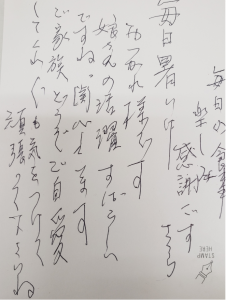 毎日の食事
楽しみ
感謝です
毎日暑い中
おつかれ様です
娘さんの活躍すばらしい
ですね。関心します
ご家族どうぞご自愛
してくれぐれも気をつけて
頑張って下さいね
STAMP
HERE